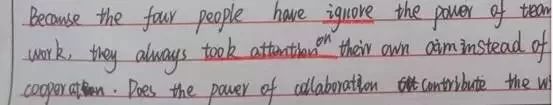 Because the four people have ignore the power of team
work, they always took attention on their own aim instead of
cooperation. Does the power of collaboration contribute the